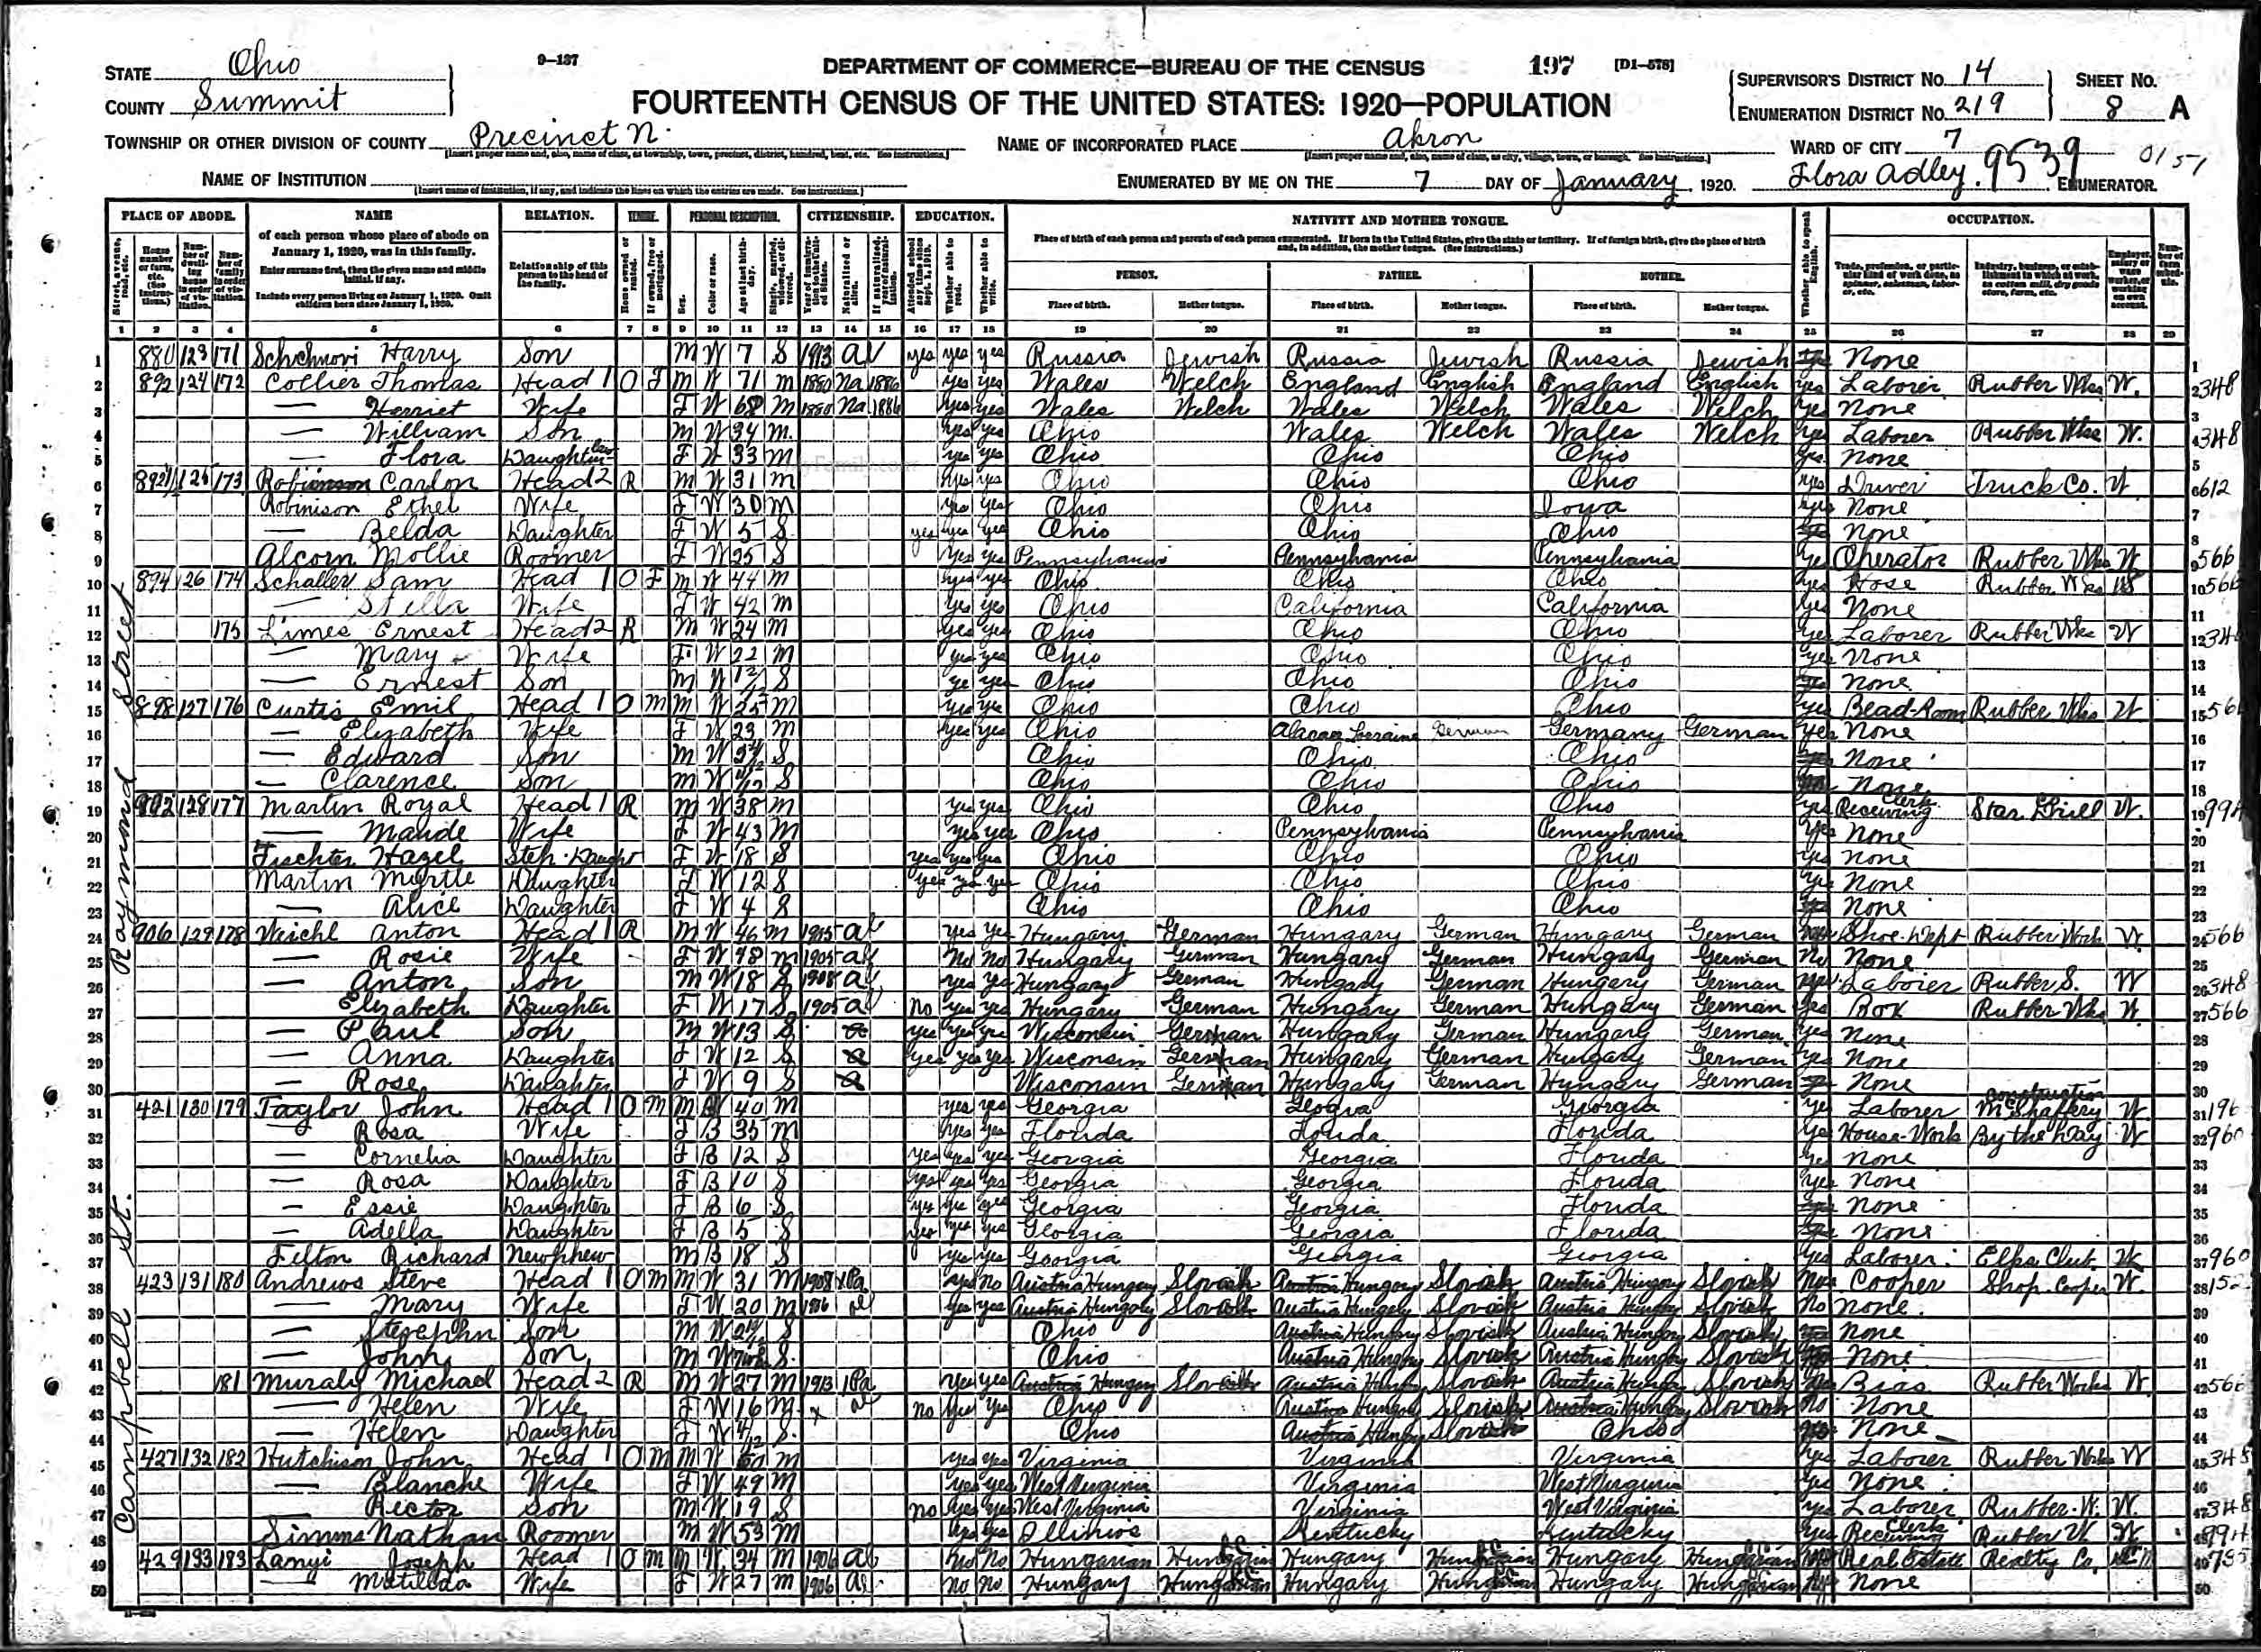 STATE Ohio
COUNTY Summit
9-137
DEPARTMENT OF COMMERCE—BUREAU OF THE CENSUS
197 [D1-578]
FOURTEENTH CENSUS OF THE UNITED STATES: 1920—POPULATION
SUPERVISOR'S DISTRICT NO. 14
ENUMERATION DISTRICT NO. 219
SHEET NO. 8 A
TOWNSHIP OR OTHER DIVISION OF COUNTY Precinct N.
NAME OF INCORPORATED PLACE Akron
WARD OF CITY 7
NAME OF INSTITUTION
ENUMERATED BY ME ON THE 7 DAY OF January, 1920. Flora Adley. ENUMERATOR.
9539 0151
PLACE OF ABODE. NAME RELATION. TENURE. PERSONAL DESCRIPTION. CITIZENSHIP. EDUCATION. NATIVITY AND MOTHER TONGUE. OCCUPATION.
of each person whose place of abode on January 1, 1920, was in this family.
Enter surname first, then the given name and middle initial, if any.
Include every person living on January 1, 1920. Omit children born since January 1, 1920.
Relationship of this person to the head of the family.
Place of birth of each person and parents of each person enumerated. If born in the United States, give the state or territory. If of foreign birth, give the place of birth and, in addition, the mother tongue. (See instructions.)
PERSON. FATHER. MOTHER.
Place of birth. Mother tongue. Place of birth. Mother tongue. Place of birth. Mother tongue.
1 2 3 4 5 6 7 8 9 10 11 12 13 14 15 16 17 18 19 20 21 22 23 24 25 26 27 28 29
Raymond Street
1 880 123 171 Harry Son M W 7 S 1913 Al yes yes yes Russia Jewish Russia Jewish Russia Jewish None 1
2 892 124 172 Collier Thomas Head 1 O F M W 71 M 1880 Na 1886 yes yes Wales Welch England English England English yes Laborer Rubber Wks W. 2 348
3 — Harriet Wife F W 68 M 1880 Na 1886 yes yes Wales Welch Wales Welch Wales Welch yes None 3
4 — William Son M W 34 M yes yes Ohio Wales Welch Wales Welch yes Laborer Rubber Wks W. 4 348
5 — Flora Daughter law F W 33 M yes yes Ohio Ohio Ohio yes None 5
6 892½ 125 173 Robinson Carlon Head 2 R M W 31 M yes yes Ohio Ohio Ohio yes Driver Truck Co. W 6 612
7 Robinison Ethel Wife F W 30 M yes yes Ohio Ohio Iowa yes None 7
8 — Belda Daughter F W 5 S yes yes yes Ohio Ohio Ohio None 8
9 Alcorn Mollie Roomer F W 25 S yes yes Pennsylvania Pennsylvania Pennsylvania yes Operator Rubber Wks W 9 566
10 894 126 174 Schaller Sam Head 1 O F M W 44 M yes yes Ohio Ohio Ohio yes Hose Rubber Wks W 10 566
11 — Stella Wife F W 42 M yes yes Ohio California California yes None 11
12 175 Limes Ernest Head 2 R M W 24 M yes yes Ohio Ohio Ohio yes Laborer Rubber Wks W 12 348
13 — Mary Wife F W 22 M yes yes Ohio Ohio Ohio yes None 13
14 — Ernest Son M W S ye yes Ohio Ohio Ohio None 14
15 898 127 176 Curtis Emil Head 1 O M M W 25 M yes yes Ohio Ohio Ohio yes Bead-Room Rubber Wks W 15 566
16 — Elizabeth Wife F W 23 M yes yes Ohio Lorraine German Germany German yes None 16
17 — Edward Son M W S Ohio Ohio Ohio None 17
18 — Clarence Son M W S Ohio Ohio Ohio None 18
19 902 128 177 Martin Royal Head 1 R M W 38 M yes yes Ohio Ohio Ohio yes Receiving Clerk Star Drill W. 19 994
20 — Maude Wife F W 43 M yes yes Ohio Pennsylvania Pennsylvania yes None 20
21 Fischter Hazel Step-Daught F W 18 S yes yes yes Ohio Ohio Ohio yes None 21
22 Martin Myrtle Daughter F W 12 S yes yes yes Ohio Ohio Ohio yes None 22
23 — Alice Daughter F W 4 S Ohio Ohio Ohio None 23
24 906 129 178 Weichl Anton Head 1 R M W 46 M 1905 Al yes yes Hungary German Hungary German Hungary German Shoe-Dept Rubber Work W. 24 566
25 — Rosie Wife F W 48 M 1905 Al No No Hungary German Hungary German Hungary German No None 25
26 — Anton Son M W 18 S 1908 Al yes yes Hungary German Hungary German Hungary German yes Laborer Rubber S. W 26 348
27 Elizabeth Daughter F W 17 S 1905 Al No yes yes Hungary German Hungary German Hungary German yes Box Rubber Wks W. 27 566
28 — Paul Son M W 13 S yes yes yes Wisconsin German Hungary German Hungary German yes None 28
29 — Anna Daughter F W 12 S yes yes yes Wisconsin German Hungary German Hungary German yes None 29
30 — Rose Daughter F W 9 S Wisconsin German Hungary German Hungary German None 30
Campbell St.
31 421 130 179 Taylor John Head 1 O M M B 40 M yes yes Georgia Geogia Georgia yes Laborer construction McShaffery W. 31 196
32 — Rosa Wife F B 35 M yes yes Florida Florida Florida yes House-Work By the Day W 32 960
33 — Cornelia Daughter F B 12 S yes yes yes Georgia Georgia Florida yes None 33
34 — Rosa Daughter F B 10 S yes yes yes Georgia Georgia Florida yes None 34
35 — Essie Daughter F B 6 S yes yes yes Georgia Georgia Florida None 35
36 — Adella Daughter F B 5 S yes yes yes Georgia Georgia Florida None 36
37 Felton Richard Newphew M B 18 S yes yes Georgia Georgia Georgia yes Laborer Elks Club. W 37 960
38 423 131 180 Andrews Steve Head 1 O M M W 31 M 1908 Pa yes No Austria Hungary Slovak Austria Hungary Slovak Austria Hungary Slovak Cooper Shop Cooper W. 38 152
39 — Mary Wife F W 20 M 1906 Al yes yes Austria Hungary Slovak Austria Hungary Slovak Austria Hungary Slovak No None. 39
40 — Stevephn Son M W S Ohio Austria Hungary Slovak Austria Hungary Slovak None 40
41 — John Son M W S. Ohio Austria Hungary Slovak Austria Hungary Slovak None 41
42 181 Muraly Michael Head 2 R M W 27 M 1913 Pa yes yes Austria Hungary Slovak Austria Hungary Slovak Austria Hungary Slovak Bias Rubber Works W. 42 566
43 — Helen Wife F W 16 M x al No yes yes Ohio Austria Hungary Slovak Austria Hungary Slovak None 43
44 — Helen Daughter F W 4/12 S. Ohio Austria Hungary Slovak Ohio None 44
45 427 132 182 Hutchison John Head 1 O M M W 50 M yes yes Virginia Virginia Virginia yes Laborer Rubber Works W 45 348
46 — Blanche Wife F W 49 M yes yes West Virginia Virginia West Virginia yes None 46
47 — Rector Son M W 19 S No yes yes West Virginia Virginia West Virginia yes Laborer Rubber. W. W. 47 348
48 Simms Nathan Roomer M W 53 M yes yes Illinois Kentucky Kentucky yes Receiving Clerk Rubber W W. 48 994
49 429 133 183 Lanyi Joseph Head 1 O M M W 34 M 1906 Al No No Hungarian Hungarian Hungary Hungarian Hungary Hungarian Real Estate Realty Co. 49 785
50 — Matilda Wife F W 27 M 1906 Al No No Hungary Hungarian Hungary Hungarian Hungary Hungarian None 50